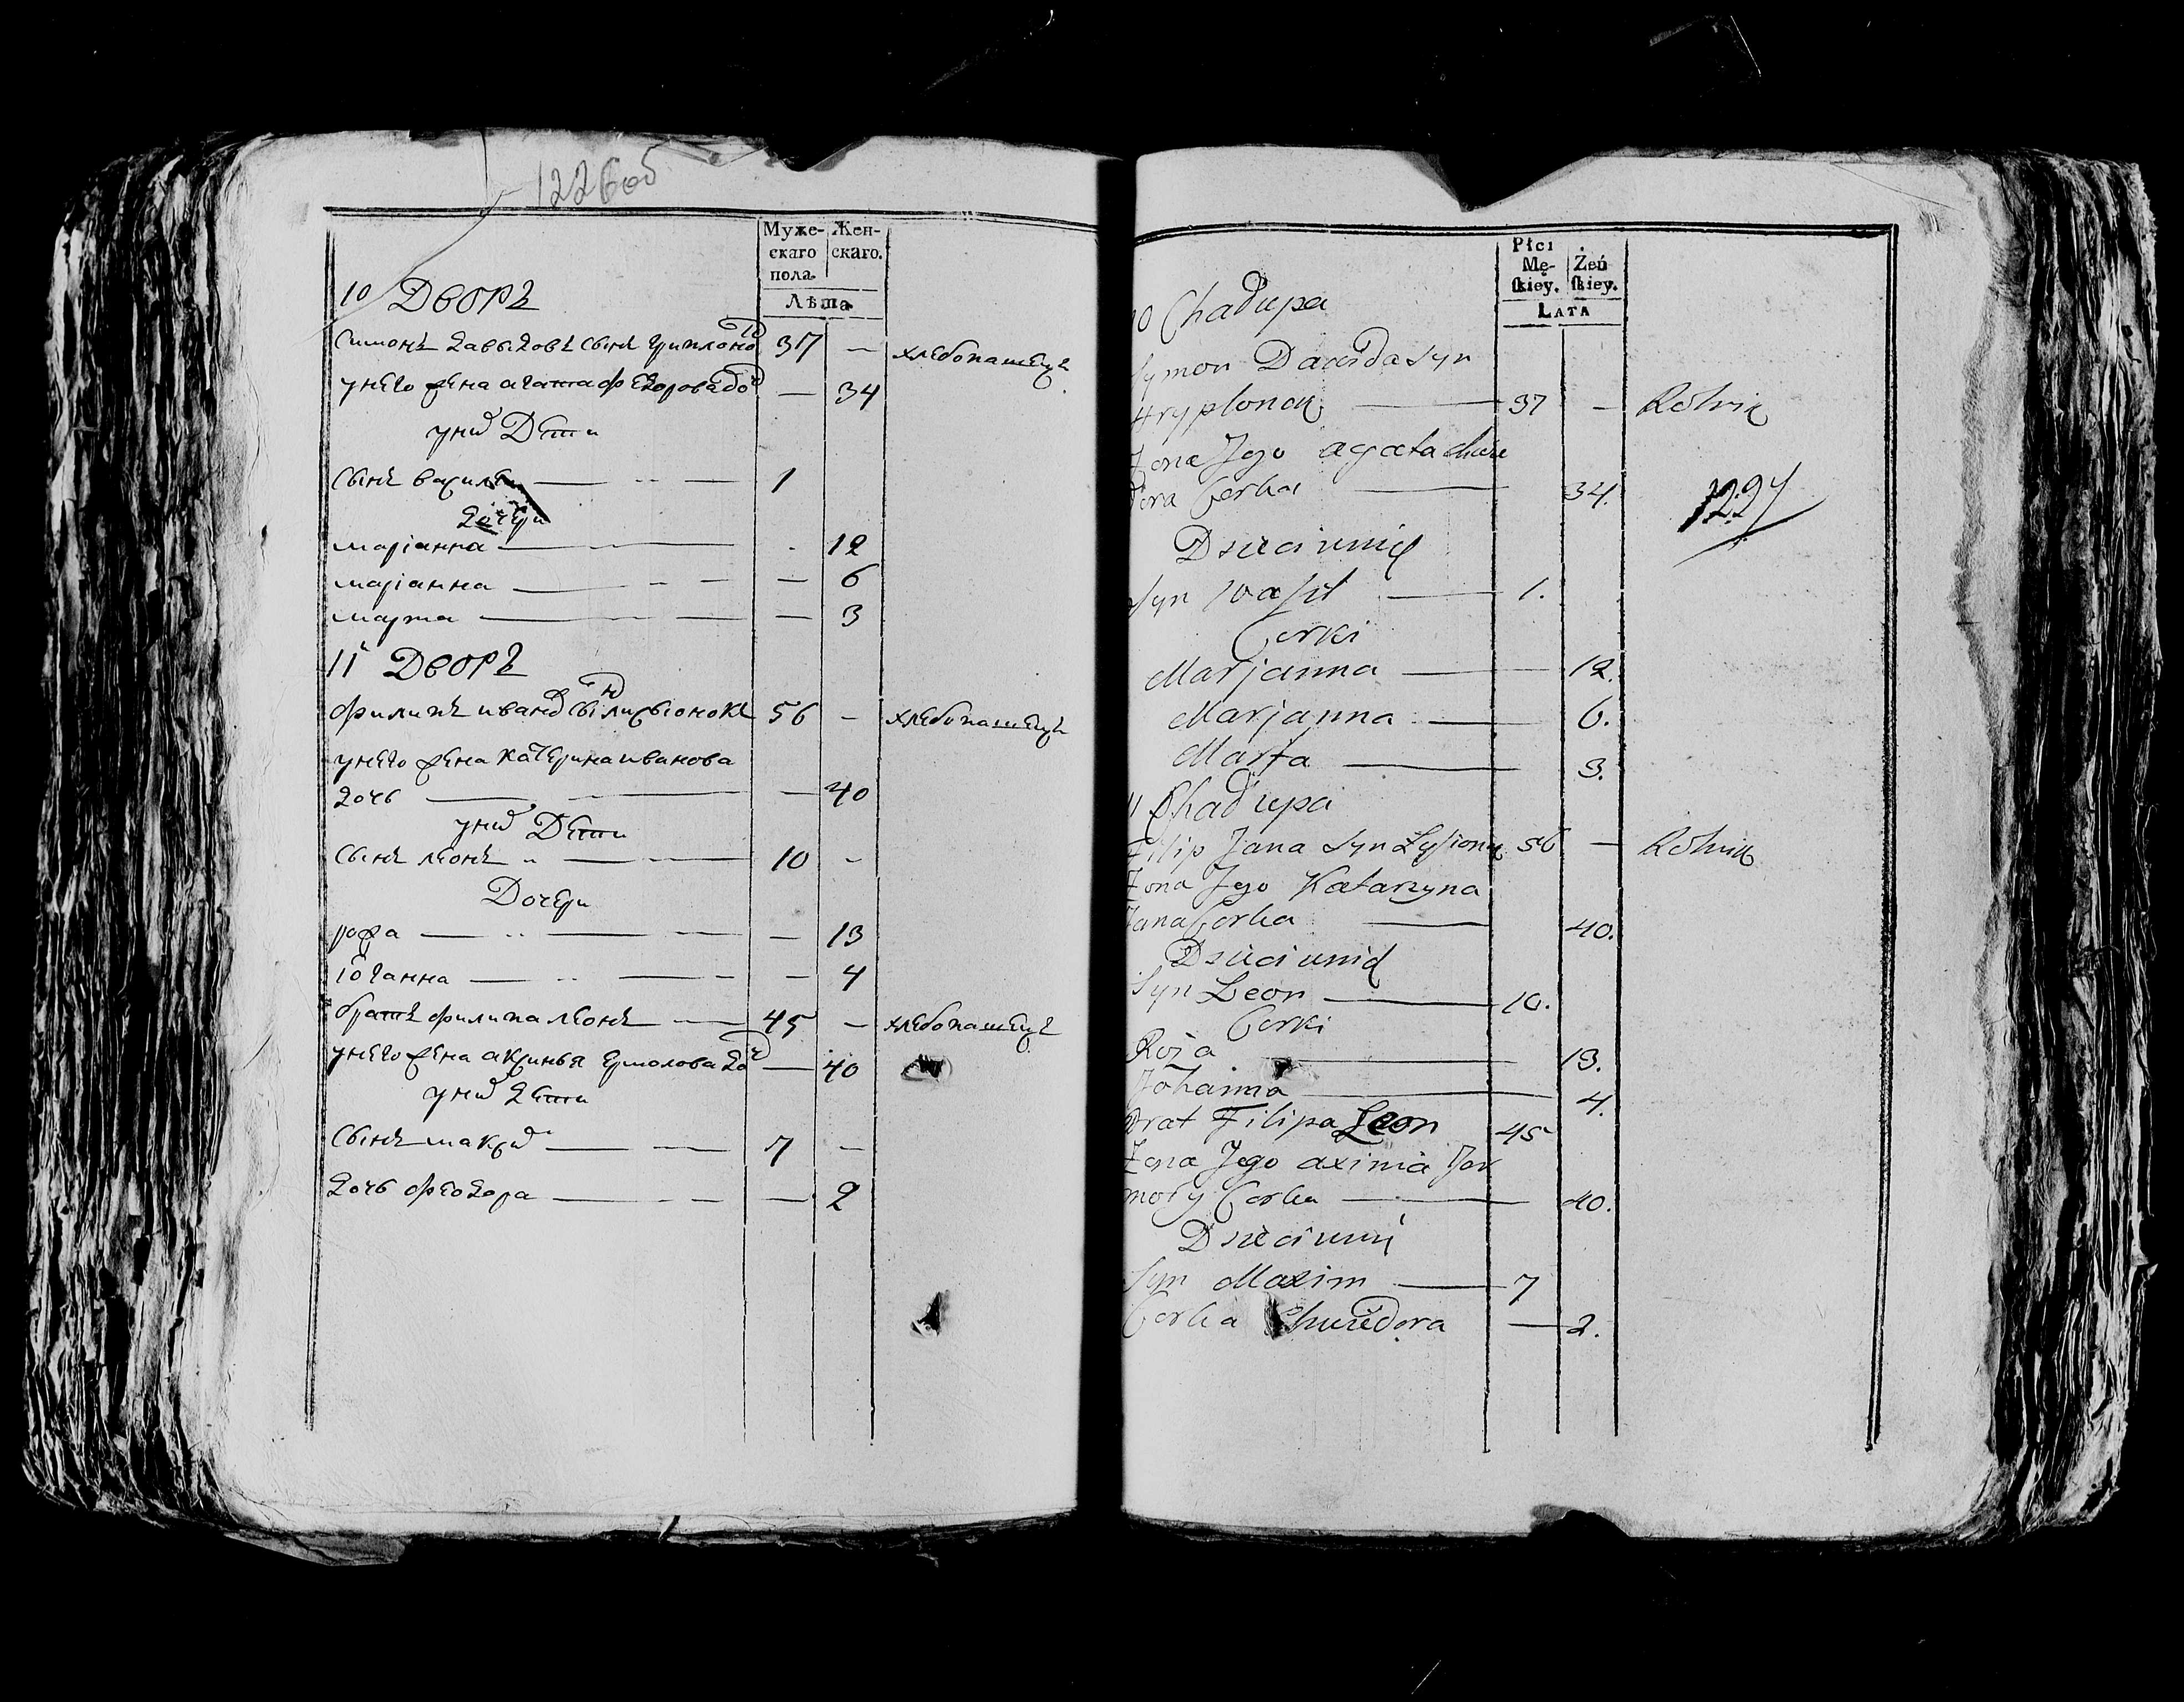 1226об
Муже-
скаго
пола.
Жен-
скаго.
Лѣта
10 Дворъ
Симонъ Давыдовъ сынъ
37 — хлебопашецъ
унего жена агата федорова доч
— 34
уних Дети
Сынъ василеи — 1
дочери
маріанна — 12
маріанна — — 6
марта — — 3
11 Дворъ
филипъ иванов
56 — хлебопашецъ
унего жена катерина иванова
дочь — — 40
уних Дети
Сынъ леонъ — 10 —
Дочери
рожа — — 13
іоганна — — 4
братъ филипа леонъ — 45 — хлебопашецъ
унего жена аксинья ермолова доч — 40
уних дети
Сынъ максим — 7 —
дочь феодора — — 2
Płci
Mę-
skiey.
Żeń
skiey.
LATA
10 Chałupa
Symon Dawida syn
Hryplonek — 37 — Rolnik
Żona Jego agata chwe
dora Corka — 34.
1227
Dzieci unich
Syn Wasil — 1.
Corki
Marjanna — 12.
Marjanna — 6.
Marta — 3.
11 Chałupa
Filip Jana Syn Łysionek 56 — Rolnik
Żona Jego Katarzyna
Jana Corka — 40.
Dzieci unich
Syn Leon — 10.
Corki
Roża — 13.
Johanna — 4.
Brat Filipa Leon 45
Żona Jego axinia Jer
moły Corka — 40.
Dzieci unich
Syn Maxim — 7
Corka Chwiedora — 2.